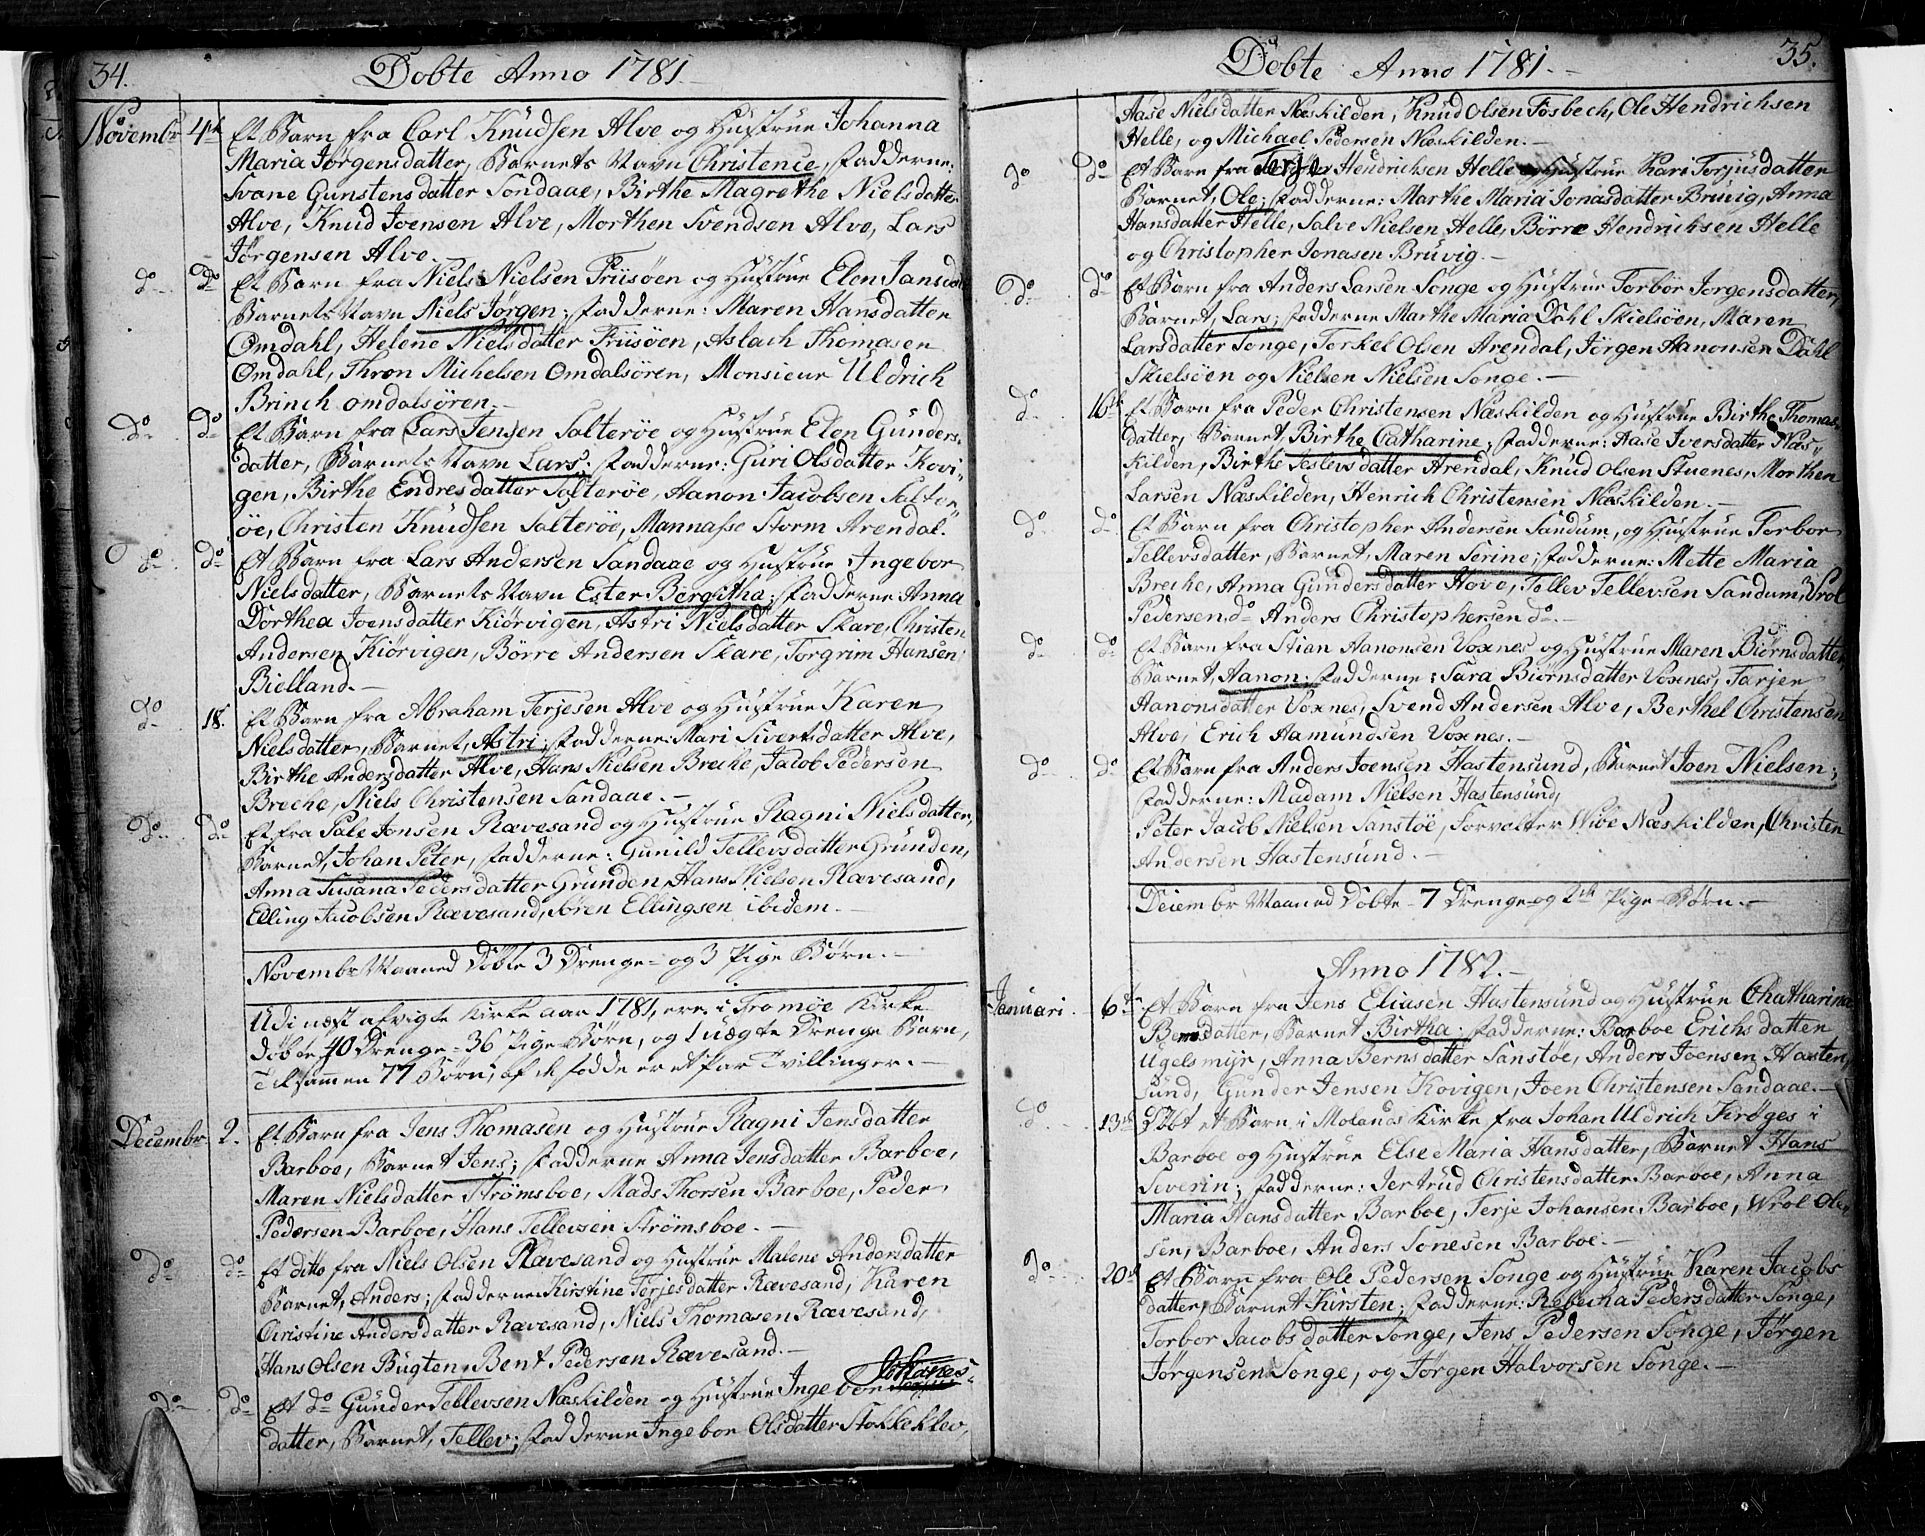 34.
Døbte Anno 1781.
Novembr 4de Et Barn fra Carl Knudsen Alve og Hustrue Johanna
Maria Jørgensdatter, Barnets Navn Christence, Fadderne:
Svane Gunstensdatter Sondaae, Birthe Magrethe Nielsdatter
Alve, Knud Joensen Alve, Morthen Svendsen Alve, Lars
Jørgensen Alve.
do do Et Barn fra Niels Nielsen Friisøen og Hustrue Elen Jansd
Barnets Navn Niels Jørgen; Fadderne: Maren Hansdatter
Omdahl, Helene Nielsdatter Friisøen, Aslach Thomasen
Omdahl, Thron Michelsen Omdalsøren, Monsieur Uldrich
Brinch omdalsøren.
do do Et Barn fra Lars Jensen Salterøe og Hustrue Elen Gunders-
datter, Barnets Navn Lars; Fadderne: Guri Olsdatter Kovi-
gen, Birthe Endresdatter Salterøe, Aanon Jacobsen Salter-
øe, Christen Knudsen Salterøe, Mannasse Storm Arendal.
do do Et Barn fra Lars Andersen Sandaae og Hustrue Ingebor
Nielsdatter, Barnets Navn Ester Bergitha; Fadderne Anna
Dorthea Joensdatter Kiørvigen, Astri Nielsdatter Skare, Christen
Andersen Kiørvigen, Børre Andersen Skare, Torgrim Hansen
Bielland.
do 18. Et Barn fra Abraham Terjesen Alve og Hustrue Karen
Nielsdatter, Barnet, Astri; Fadderne: Mari Sivertsdatter Alve,
Birthe Andersdatter Alve, Hans Nielsen Breche, Jacob Pedersen
Breche, Niels Christensen Sandaae.
do do Et fra Pale Jonsen Rævesand og Hustrue Ragni Nielsdatter,
Barnet, Johan Peter, Fadderne: Gunild Tellevsdatter Grunden,
Anna Susana Pedersdatter Grunden, Hans Nielsen Rævesand,
Elling Jacobsen Rævesand, Søren Ellingsen ibidem.
Novembr Maaned Døbte 3 Drenge- og 3 Pige Børn.
Udi næst afvigte Kirke aar 1781, ere i Tromøe Kirke
døbte 40 Drenge- 36 Pige Børn, og 1 uægte Drenge Barn,
Tilsammen 77 Børn; af de fødde er et par Tvillinger.
Decembr 2. Et Barn fra Jens Thomasen og Hustrue Ragni Jensdatter
Barboe, Barnet Jens; Fadderne Anna Jensdatter Barboe,
Maren Nielsdatter Strømsboe, Mads Thorsen Barboe, Peder
Pedersen Barboe, Hans Tellevsen Strømsboe.
do do Et ditto fra Niels Olsen Rævesand og Hustrue Malene Andersdatter
Barnet, Anders; Fadderne Kirstine Terjesdatter Rævesand, Karen
Christine Andersdatter Rævesand, Niels Thomasen Rævesand,
Hans Olsen Bugten, Bent Pedersen Rævesand.
do do Et do Gunder Tellevsen Næskilden og Hustrue Ingebor Johanes-
datter, Barnet, Tellev; Fadderne Ingebor Olsdatter Stokkeklev,
Døbte Anno 1781.
35.
Aase Nielsdatter Næskilden, Knud Olsen Fosbech, Ole Hendrichsen
Helle, og Michael Pedersen Næskilden.
do do Et Barn fra Terje Hendrichsen Helle og Hustrue Kari Torjusdatter
Barnet, Ole; Fadderne: Marthe Maria Jonasdatter Bruvig, Anna
Hansdatter Helle, Salve Nielsen Helle, Børre Hendrichsen Helle
og Christopher Jonasen Bruvig.
do do Et Barn fra Anders Larsen Songe og Hustrue Torbør Jørgensdatter,
Barnet, Lars; Fadderne Marthe Maria Dahl Skielsøen, Maren
Larsdatter Songe, Torkel Olsen Arendal, Jørgen Aanonsen Dahl
Skielsøen og Nielsen Nielsen Songe.
do 16de Et Barn fra Peder Christensen Næskilden og Hustrue Birthe Thomas-
datter, Barnet, Birthe Catharine; Fadderne: Aase Iversdatter Næs-
kilden, Birthe Teslevsdatter Arendal, Knud Olsen Stuenes, Morthen
Larsen Næskilden, Henrich Christensen Næskilden.
do do Et Barn fra Christopher Andersen Sandum, og Hustrue Torbor
Tellevsdatter, Barnet, Maren Serine; Fadderne: Mette Maria
Breche, Anna Gundersdatter Hove, Tellev Tellevsen Sandum, Wrol
Pedersen do Anders Christophersen do.
do do Et Barn fra Stian Aanonsen Voxnes og Hustrue Maren Biørnsdatter
Barnet, Aanon. Fadderne: Sara Biørnsdatter Voxnes, Tarjer
Aanonsdatter Voxnes, Svend Andersen Alve, Berthel Christensen
Alve, Erich Aamundsen Voxnes.
do do Et Barn fra Anders Joensen Hastensund, Barnet Joen Nielsen;
Fadderne: Madam Nielsen Hastensund,
Peter Jacob Nielsen Sanstøe, Forvalter Wibe Næskilden, Christen
Andersen Hastensund.
Deiembr Maaned Døbte 7 Drenge- og 2de Pige Børn.
Anno 1782.
Januari 6te Et Barn fra Jens Eliasen Hastensund og Hustrue Chatharina
Berndatter, Barnet Birtha. Fadderne: Barboe Erichsdatter
Ugelsmyr, Anna Bernsdatter Sanstøe, Anders Joensen Hasten-
sund, Gunder Jensen Kovigen, Joen Christensen Sandaae.
do 13de Døbt et Barn i Molands Kirke fra Johan Uldrich Krøges i
Barboe og Hustrue Else Maria Hansdatter, Barnet Hans
Severin; Fadderne: Jertrud Christensdatter Barboe, Anna
Maria Hansdatter Barboe, Terje Johansen Barboe, Wrol Ole-
sen, Barboe, Anders Tonesen Barboe.
do 20de Et Barn fra Ole Pedersen Songe og Hustrue Karen Jacobs
datter, Barnet Kirsten; Fadderne: Rebecha Pedersdatter Songe,
Torbor Jacobsdatter Songe, Jens Pedersen Songe, Jørgen
Jørgensen Songe, og Jørgen Halvorsen Songe.